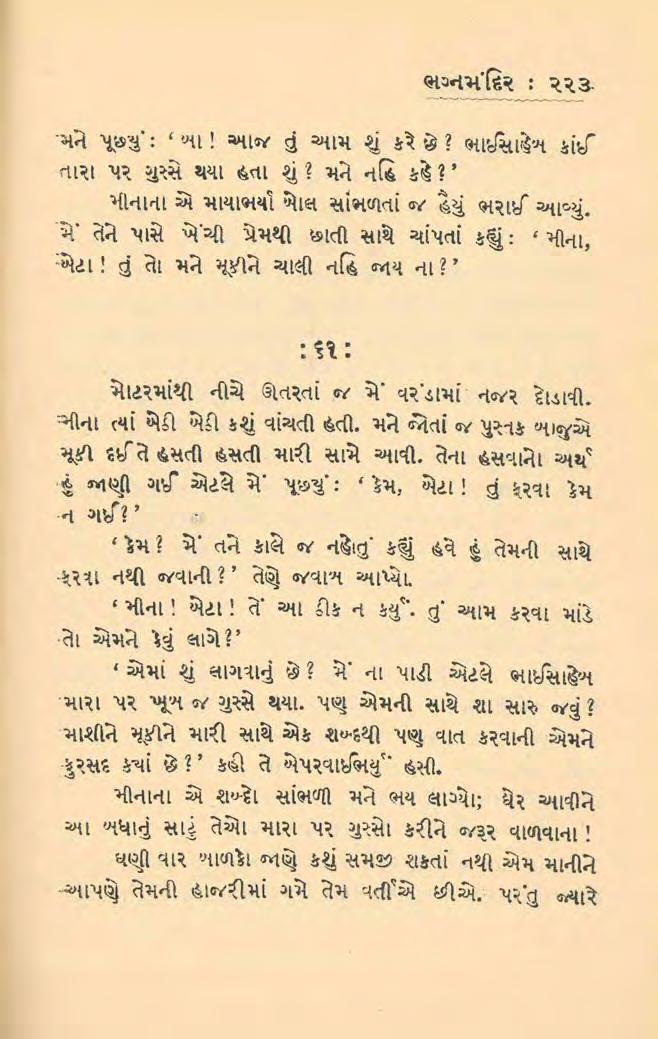 ભગ્નમંદિર : ૨૨૩
મને પૂછ્યું : ‘ બા ! આજ તું આમ શું કરે છે ? ભાઈસાહેબ કાંઈ
તારા પર ગુસ્સે થયા હતા શું ? મને નહિ કહે ? ’
મીનાના એ માયાભર્યા બોલ સાંભળતાં જ હૈયું ભરાઈ આવ્યું.
મેં તેને પાસે ખેંચી પ્રેમથી છાતી સાથે ચાંપતાં કહ્યું : ‘ મીના,
બેટા ! તું તો મને મૂકીને ચાલી નહિ જાય ના ? ’
: ૬૧ :
મોટરમાંથી નીચે ઊતરતાં જ મેં વરંડામાં નજર દોડાવી.
મીના ત્યાં બેઠી બેઠી કશું વાંચતી હતી. મને જોતાં જ પુસ્તક બાજુએ
મૂકી દઈ તે હસતી હસતી મારી સામે આવી. તેના હસવાનો અર્થ
હું જાણી ગઈ એટલે મેં પૂછ્યું : ‘ કેમ, બેટા ! તું ફરવા કેમ
ન ગઈ ? ’
‘ કેમ ? મેં તને કાલે જ નહોતું કહ્યું હવે હું તેમની સાથે
ફરવા નથી જવાની ? ’ તેણે જવાબ આપ્યો.
‘ મીના ! બેટા ! તેં આ ઠીક ન કર્યું. તું આમ કરવા માંડે
તો એમને કેવું લાગે ? ’
‘ એમાં શું લાગવાનું છે ? મેં ના પાડી એટલે ભાઈસાહેબ
મારા પર ખૂબ જ ગુસ્સે થયા. પણ એમની સાથે શા સારુ જવું ?
માશીને મૂકીને મારી સાથે એક શબ્દથી પણ વાત કરવાની એમને
ફુરસદ ક્યાં છે ? ’ કહી તે બેપરવાઈભર્યું હસી.
મીનાના એ શબ્દો સાંભળી મને ભય લાગ્યો; ઘેર આવીને
આ બધાનું સાટું તેઓ મારા પર ગુસ્સો કરીને જરૂર વાળવાના !
ઘણી વાર બાળકો જાણે કશું સમજી શકતાં નથી એમ માનીને
આપણે તેમની હાજરીમાં ગમે તેમ વર્તીએ છીએ. પરંતુ જ્યારે